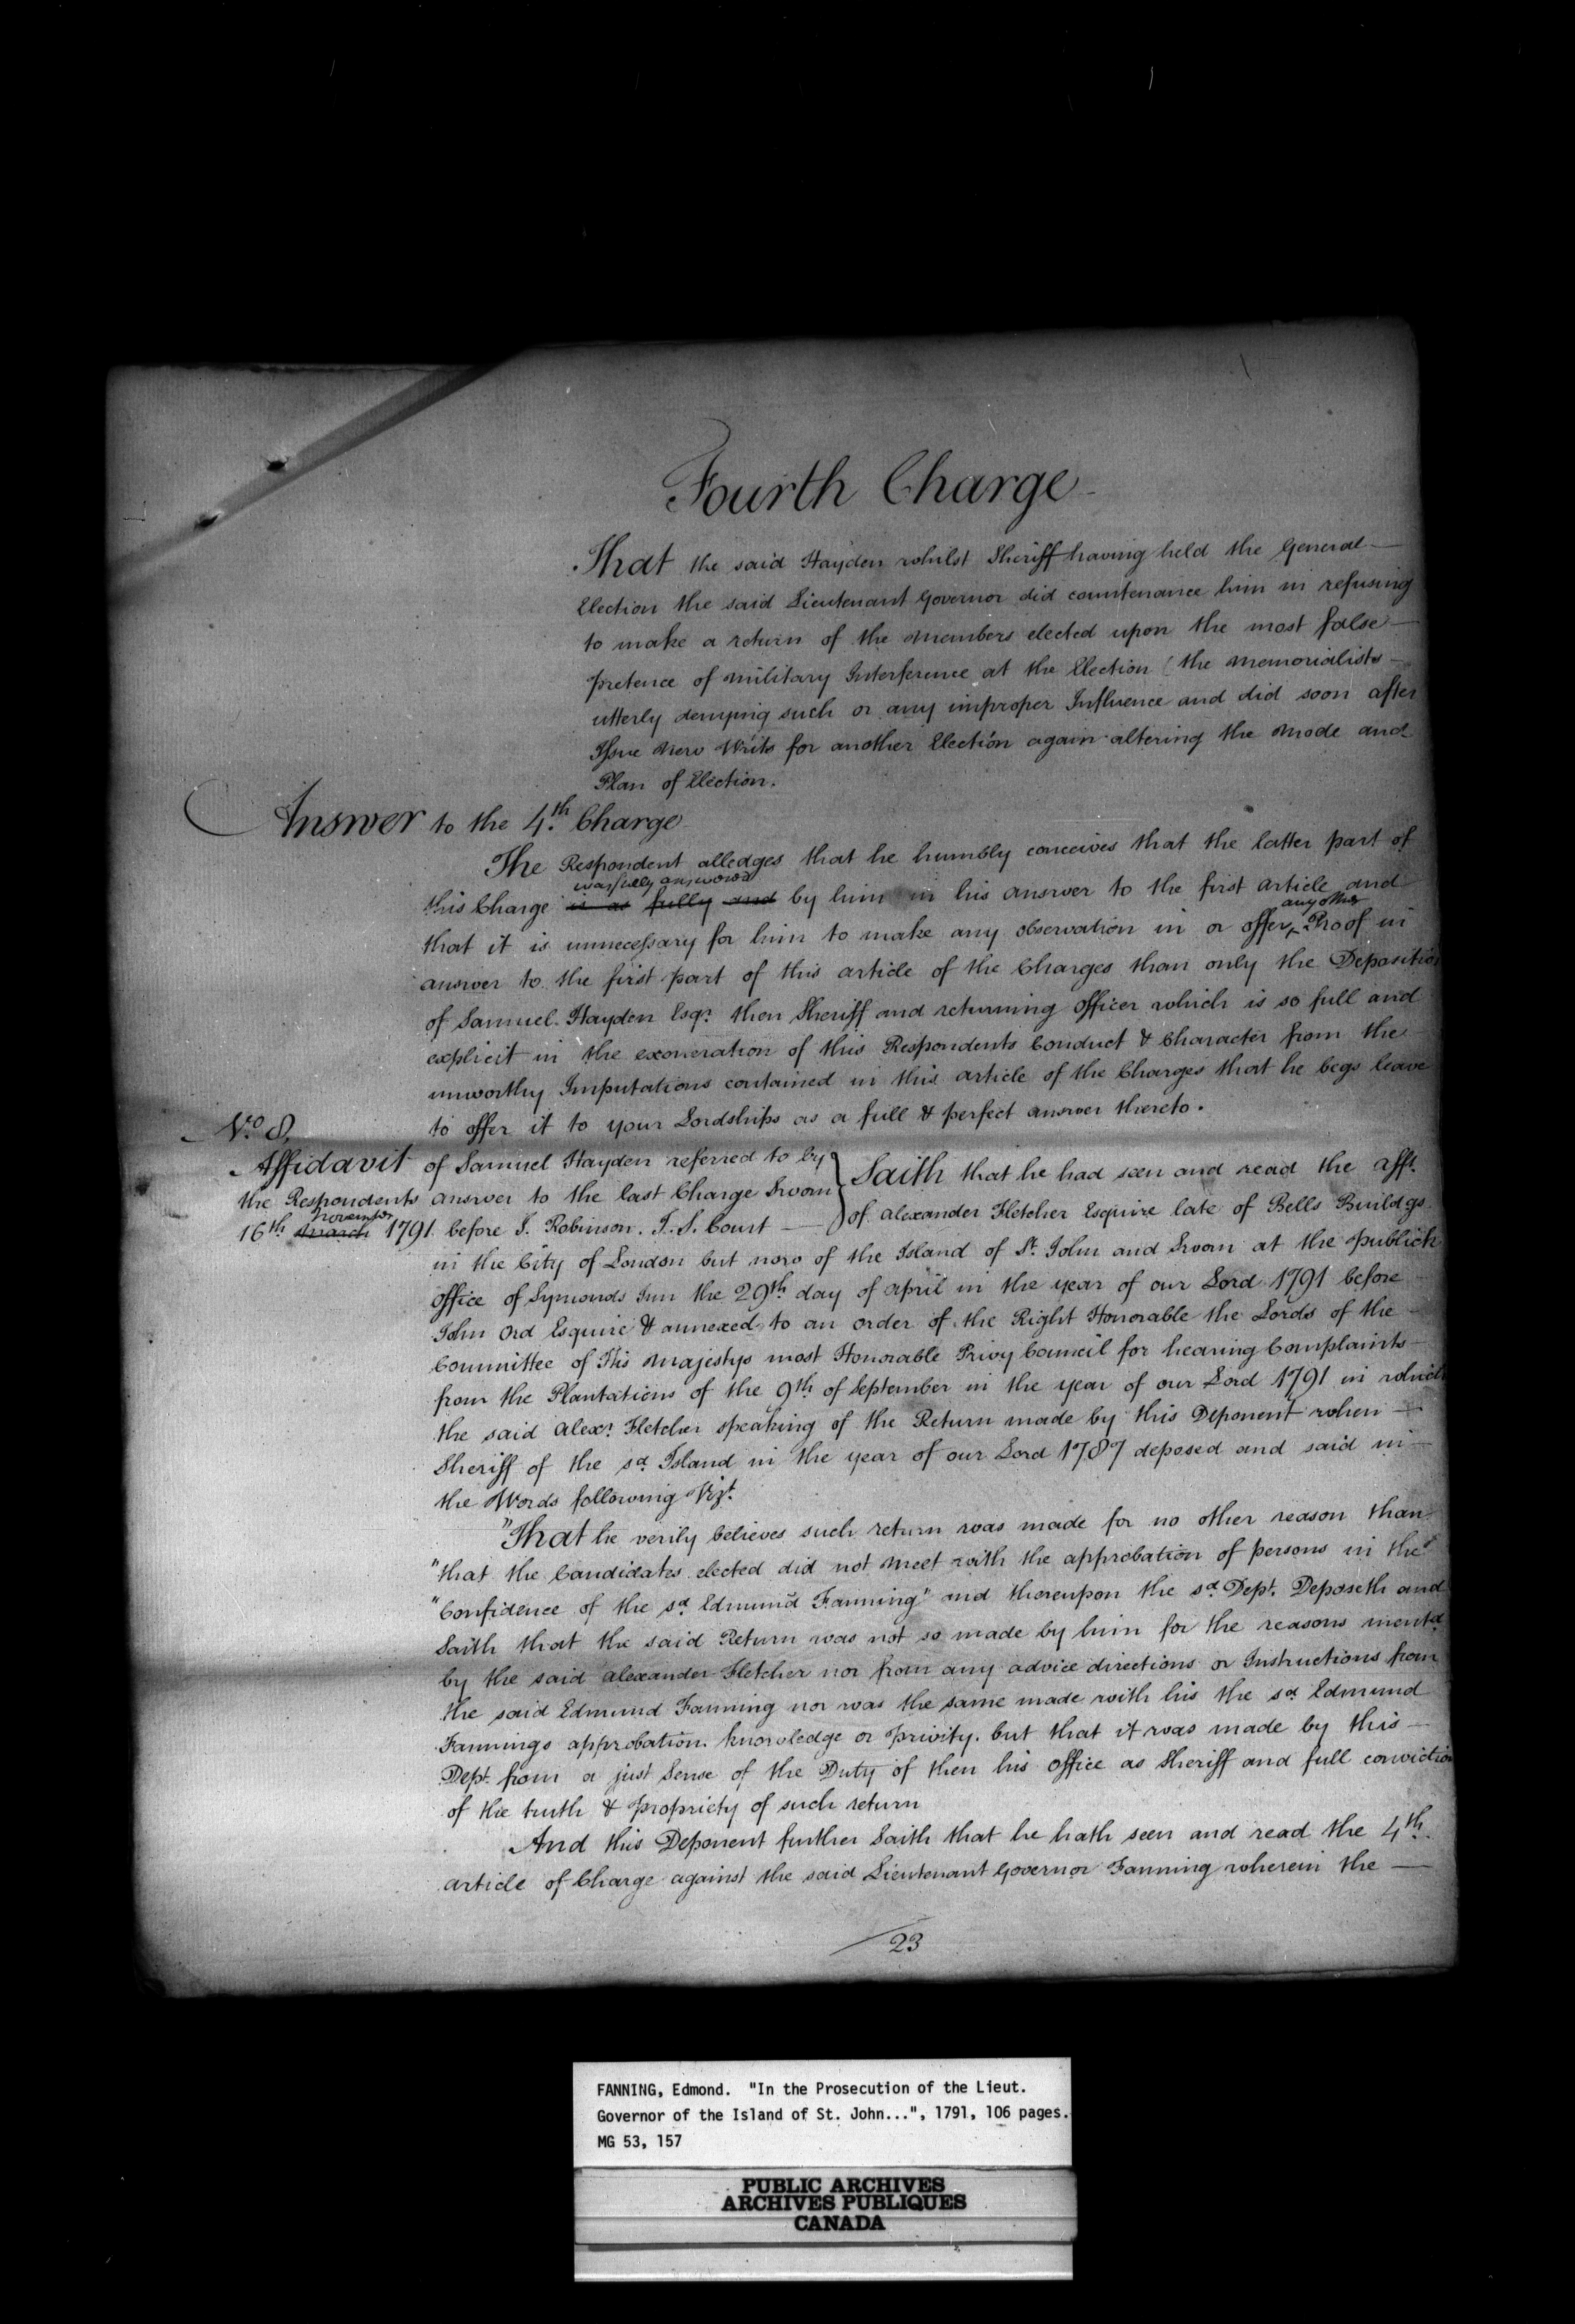 Fourth Charge
That the said Hayden whilst Sheriff having held the General
Election the said Lieutenant Governor did countenance him in refusing
to make a return of the Members elected upon the most false
pretence of military Interference at the Election (the Memorialists
utterly denying such or any improper Influence and did soon after
Issue New Writs for another Election again altering the Mode and
Plan of Election.
Answer to the 4.th Charge
The Respondent alledges that he humbly conceives that the latter part of
was fully answered
this Charge is as fully and by him in his answer to the first article and
any other
that it is unnecessary for him to make any observation in or offer Proof in
answer to the first part of this article of the Charges than only the Deposition
of Samuel Hayden Esqr. then Sheriff and returning Officer which is so full and
explicit in the exoneration of this Respondents Conduct & Character from the
unworthy Imputations contained in this article of the Charges that he begs leave
to offer it to your Lordships as a full & perfect answer thereto.
No. 8.
Affidavit of Samuel Hayden referred to by
the Respondents answer to the last Charge Sworn
November
16th March 1791 before J. Robinson. J. S. Court —
Saith that he had seen and read the afft.
of Alexander Fletcher Esquire late of Bells Buildgs
in the City of London but now of the Island of St. John and Sworn at the publick
office of Symonds Inn the 29th day of April in the year of our Lord 1791 before
John Ord Esquire & annexed to an order of the Right Honorable the Lords of the
Committee of His Majestys most Honorable Privy Council for hearing Complaints
from the Plantations of the 9th of September in the year of our Lord 1791 in which
the said Alexr. Fletcher speaking of the Return made by this Deponent when —
Sheriff of the sd. Island in the year of our Lord 1787 deposed and said in
the Words following Vizt.
"That he verily believes such return was made for no other reason than
"that the Candidates elected did not meet with the approbation of persons in the
"Confidence of the sd. Edmund Fanning" and thereupon the sd. Dept. Deposeth and
Saith that the said Return was not so made by him for the reasons mentd.
by the said Alexander Fletcher nor from any advice directions or Instructions from
the said Edmund Fanning nor was the same made with his the sd. Edmund
Fannings approbation knowledge or privity. but that it was made by this —
Dept. from a just Sense of the Duty of then his office as Sheriff and full conviction
of the truth & propriety of such return
And this Deponent further Saith that he hath seen and read the 4th.
article of Charge against the said Lieutenant Governor Fanning wherein the —
23
FANNING, Edmond. "In the Prosecution of the Lieut.
Governor of the Island of St. John...", 1791, 106 pages.
MG 53, 157
PUBLIC ARCHIVES
ARCHIVES PUBLIQUES
CANADA